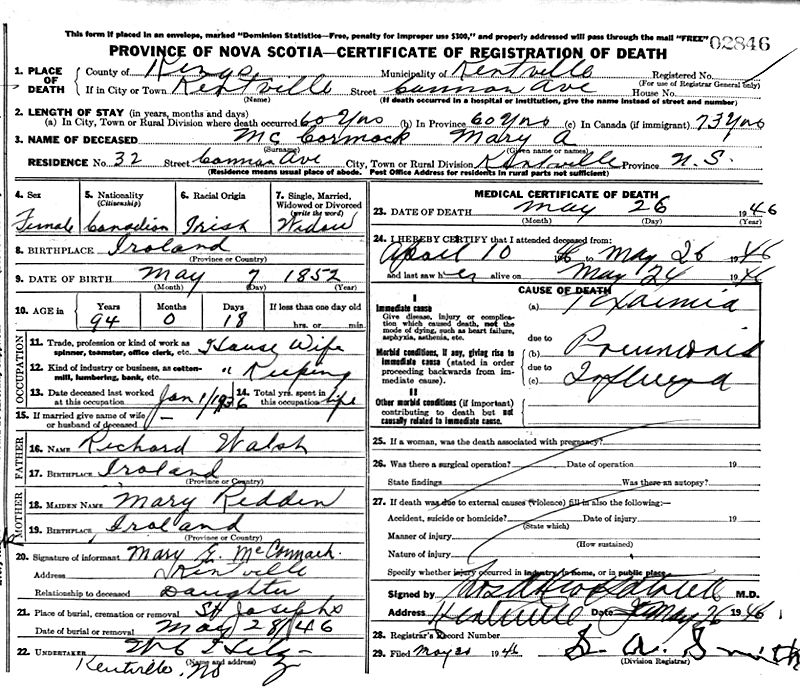 This form if placed in an envelope, marked "Dominion Statistics—Free, penalty for improper use $300," and properly addressed will pass through the mail "FREE"
02846
PROVINCE OF NOVA SCOTIA—CERTIFICATE OF REGISTRATION OF DEATH
1. PLACE OF DEATH
County of Kings Municipality of Kentville Registered No.
(For use of Registrar General only)
If in City or Town Kentville Street Cannon Ave House No.
(Name) (If death occurred in a hospital or institution, give the name instead of street and number)
2. LENGTH OF STAY (in years, months and days)
(a) In City, Town or Rural Division where death occurred 60 Yrs (b) In Province 60 Yrs (c) In Canada (if immigrant) 73 Yrs
3. NAME OF DECEASED Mc Cormock Mary A
(Surname) (Given name or names)
RESIDENCE No. 32 Street Cannon Ave City, Town or Rural Division Kentville Province N.S.
(Residence means usual place of abode. Post Office Address for residents in rural parts not sufficient)
4. Sex
Female
5. Nationality
(Citizenship)
Canadian
6. Racial Origin
Irish
7. Single, Married, Widowed or Divorced
(write the word)
Widow
8. BIRTHPLACE Iroland
(Province or Country)
9. DATE OF BIRTH May 7 1852
(Month) (Day) (Year)
10. AGE in
Years Months Days If less than one day old
94 0 18 hrs. or min.
OCCUPATION
11. Trade, profession or kind of work as
spinner, teamster, office clerk, etc. House Wife
12. Kind of industry or business, as cotton-
mill, lumbering, bank, etc. " Keeping
13. Date deceased last worked
at this occupation Jan 1/1936
14. Total yrs. spent in
this occupation life
15. If married give name of wife
or husband of deceased —
FATHER
16. NAME Richard Walsh
17. BIRTHPLACE Iroland
(Province or Country)
MOTHER
18. MAIDEN NAME Mary Redden
19. BIRTHPLACE Iroland
(Province or Country)
20. Signature of informant Mary E. McCormack.
Address Kentville
Relationship to deceased Daughter
21. Place of burial, cremation or removal St Josephs
Date of burial or removal May 28/46
22. UNDERTAKER
(Name and address)
Kentville, NS
MEDICAL CERTIFICATE OF DEATH
23. DATE OF DEATH May 26 1946
(Month) (Day) (Year)
24. I HEREBY CERTIFY that I attended deceased from:
April 10 to May 26 1946
and last saw her alive on May 24 1946
CAUSE OF DEATH
I
Immediate cause
Give disease, injury or complica-
tion which caused death, not the
mode of dying, such as heart failure,
asphyxia, asthenia, etc.
(a)
due to
Morbid conditions, if any, giving rise to
immediate cause (stated in order
proceeding backwards from im-
mediate cause).
(b) Pneumonia
due to
(c)
II
Other morbid conditions (if important)
contributing to death but not
causally related to immediate cause.
25. If a woman, was the death associated with pregnancy?
26. Was there a surgical operation? Date of operation 19
State findings Was there an autopsy?
27. If death was due to external causes (violence) fill in also the following:—
Accident, suicide or homicide? Date of injury 19
(State which)
Manner of injury
(How sustained)
Nature of injury
Specify whether injury occurred in industry, in home, or in public place
Signed by M.D.
Address Kentville Date May 26 1946
28. Registrar's Record Number
29. Filed May 1946 Smith
(Division Registrar)